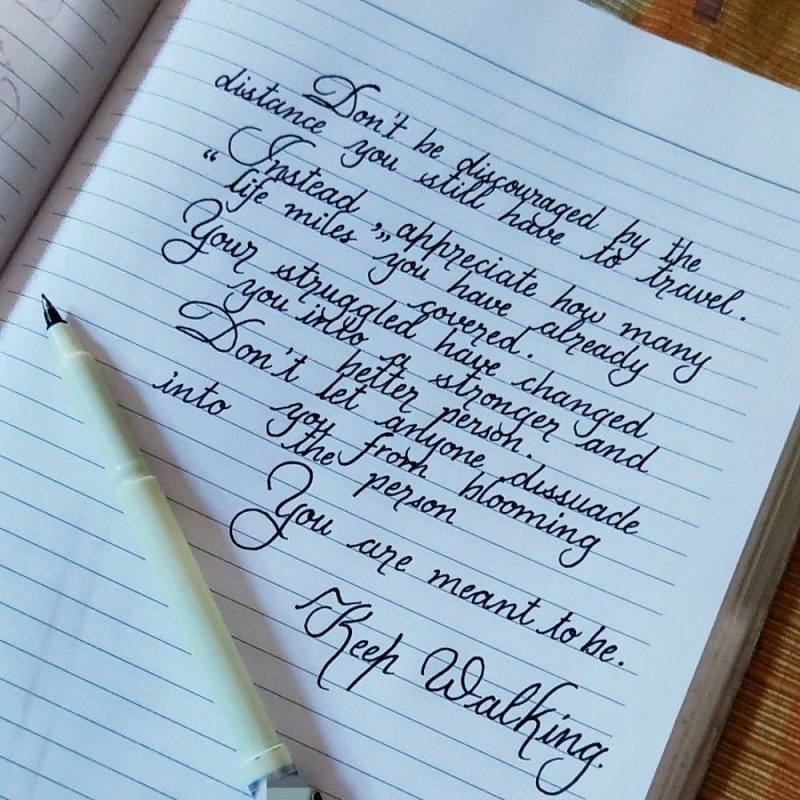 Don't be discouraged by the
distance you still have to travel.
Instead, appreciate how many
“life miles” you have already
covered.
Your struggled have changed
you into a stronger and
better person.
Don't let anyone dissuade
into you from blooming
the person
You are meant to be.
Keep Walking.